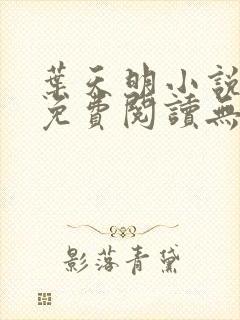 葉天明小說
免費閱讀無
影落青黛